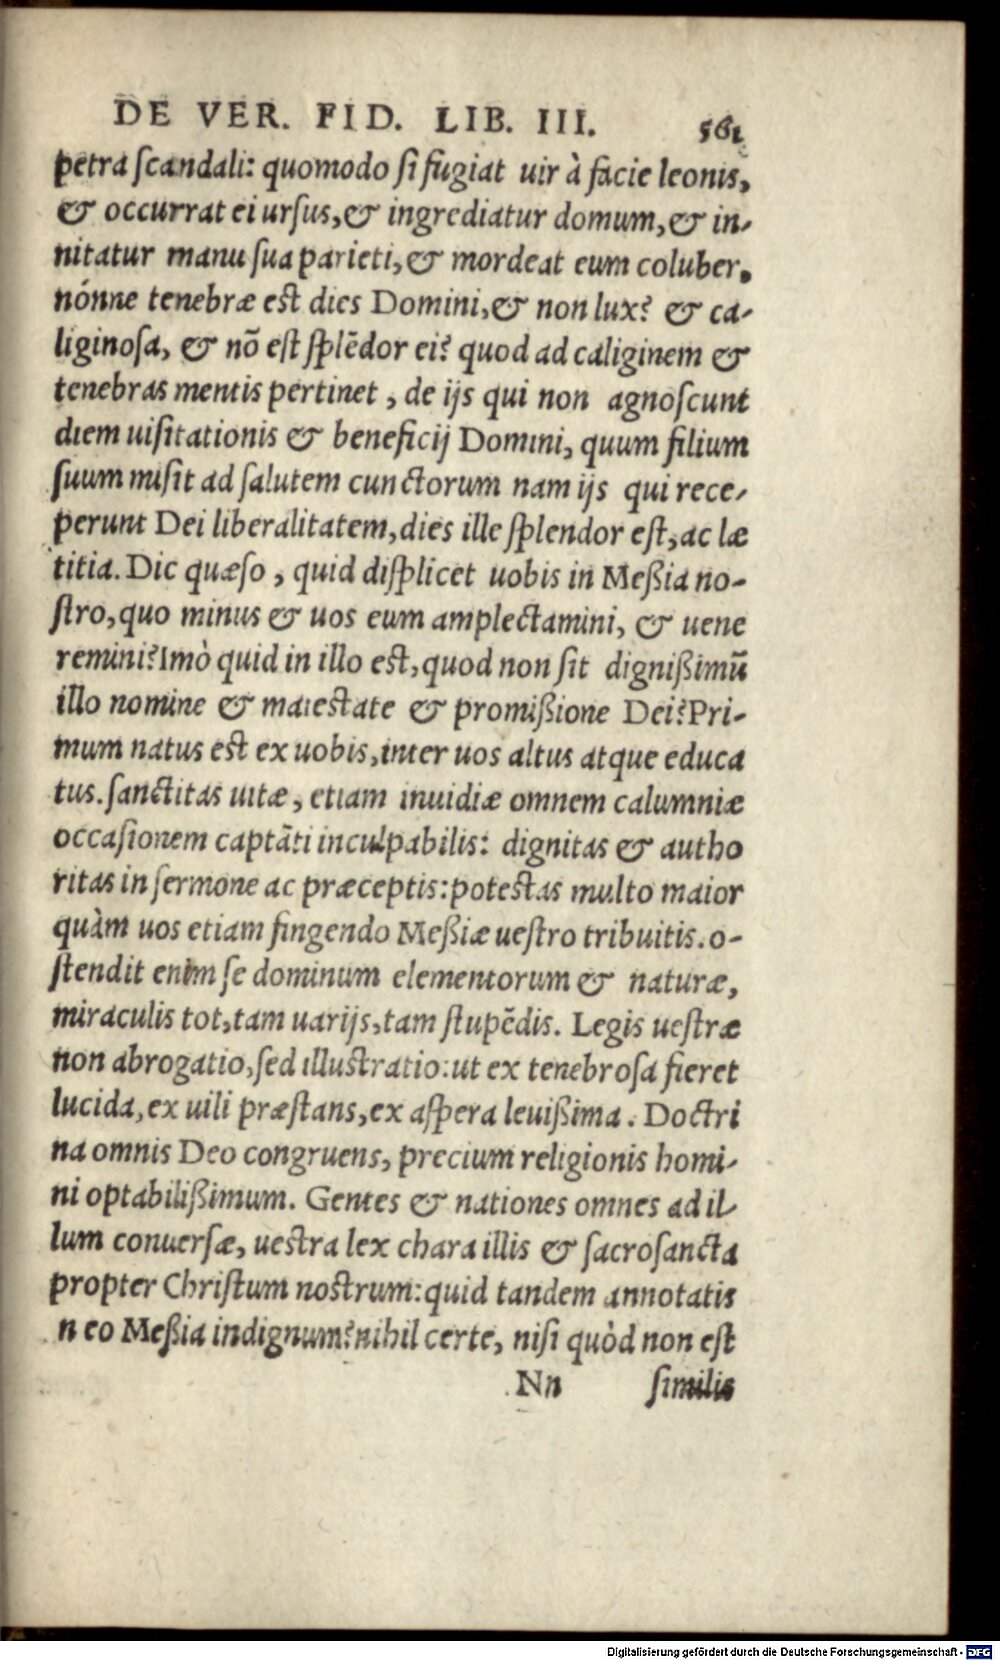 DE VER. FID. LIB. III. 561
petra scandali: quomodo si fugiat uir à facie leonis,
& occurrat ei ursus, & ingrediatur domum, & in-
nitatur manu sua parieti, & mordeat eum coluber.
nónne tenebræ est dies Domini, & non lux? & ca-
liginosa, & nō est splēdor ei? quod ad caliginem &
tenebras mentis pertinet, de ijs qui non agnoscunt
diem uisitationis & beneficij Domini, quum filium
suum misit ad salutem cunctorum nam ijs qui rece-
perunt Dei liberalitatem, dies ille splendor est, ac læ
titia. Dic quæso, quid displicet uobis in Meßia no-
stro, quo minus & uos eum amplectamini, & uene
remini? Imò quid in illo est, quod non sit dignißimū
illo nomine & maiestate & promißione Dei? Pri-
mum natus est ex uobis, inter uos altus atque educa
tus. sanctitas uitæ, etiam inuidiæ omnem calumniæ
occasionem captāti inculpabilis: dignitas & autho
ritas in sermone ac præceptis: potestas multo maior
quàm uos etiam fingendo Meßiæ uestro tribuitis. o-
stendit enim se dominum elementorum & naturæ,
miraculis tot, tam uarijs, tam stupēdis. Legis uestræ
non abrogatio, sed illustratio: ut ex tenebrosa fieret
lucida, ex uili præstans, ex aspera leuißima. Doctri
na omnis Deo congruens, precium religionis homi-
ni optabilißimum. Gentes & nationes omnes ad il-
lum conuersæ, uestra lex chara illis & sacrosancta
propter Christum nostrum: quid tandem annotatis
n eo Meßia indignum? nihil certe, nisi quòd non est
Nn similis
Digitalisierung gefördert durch die Deutsche Forschungsgemeinschaft - DFG